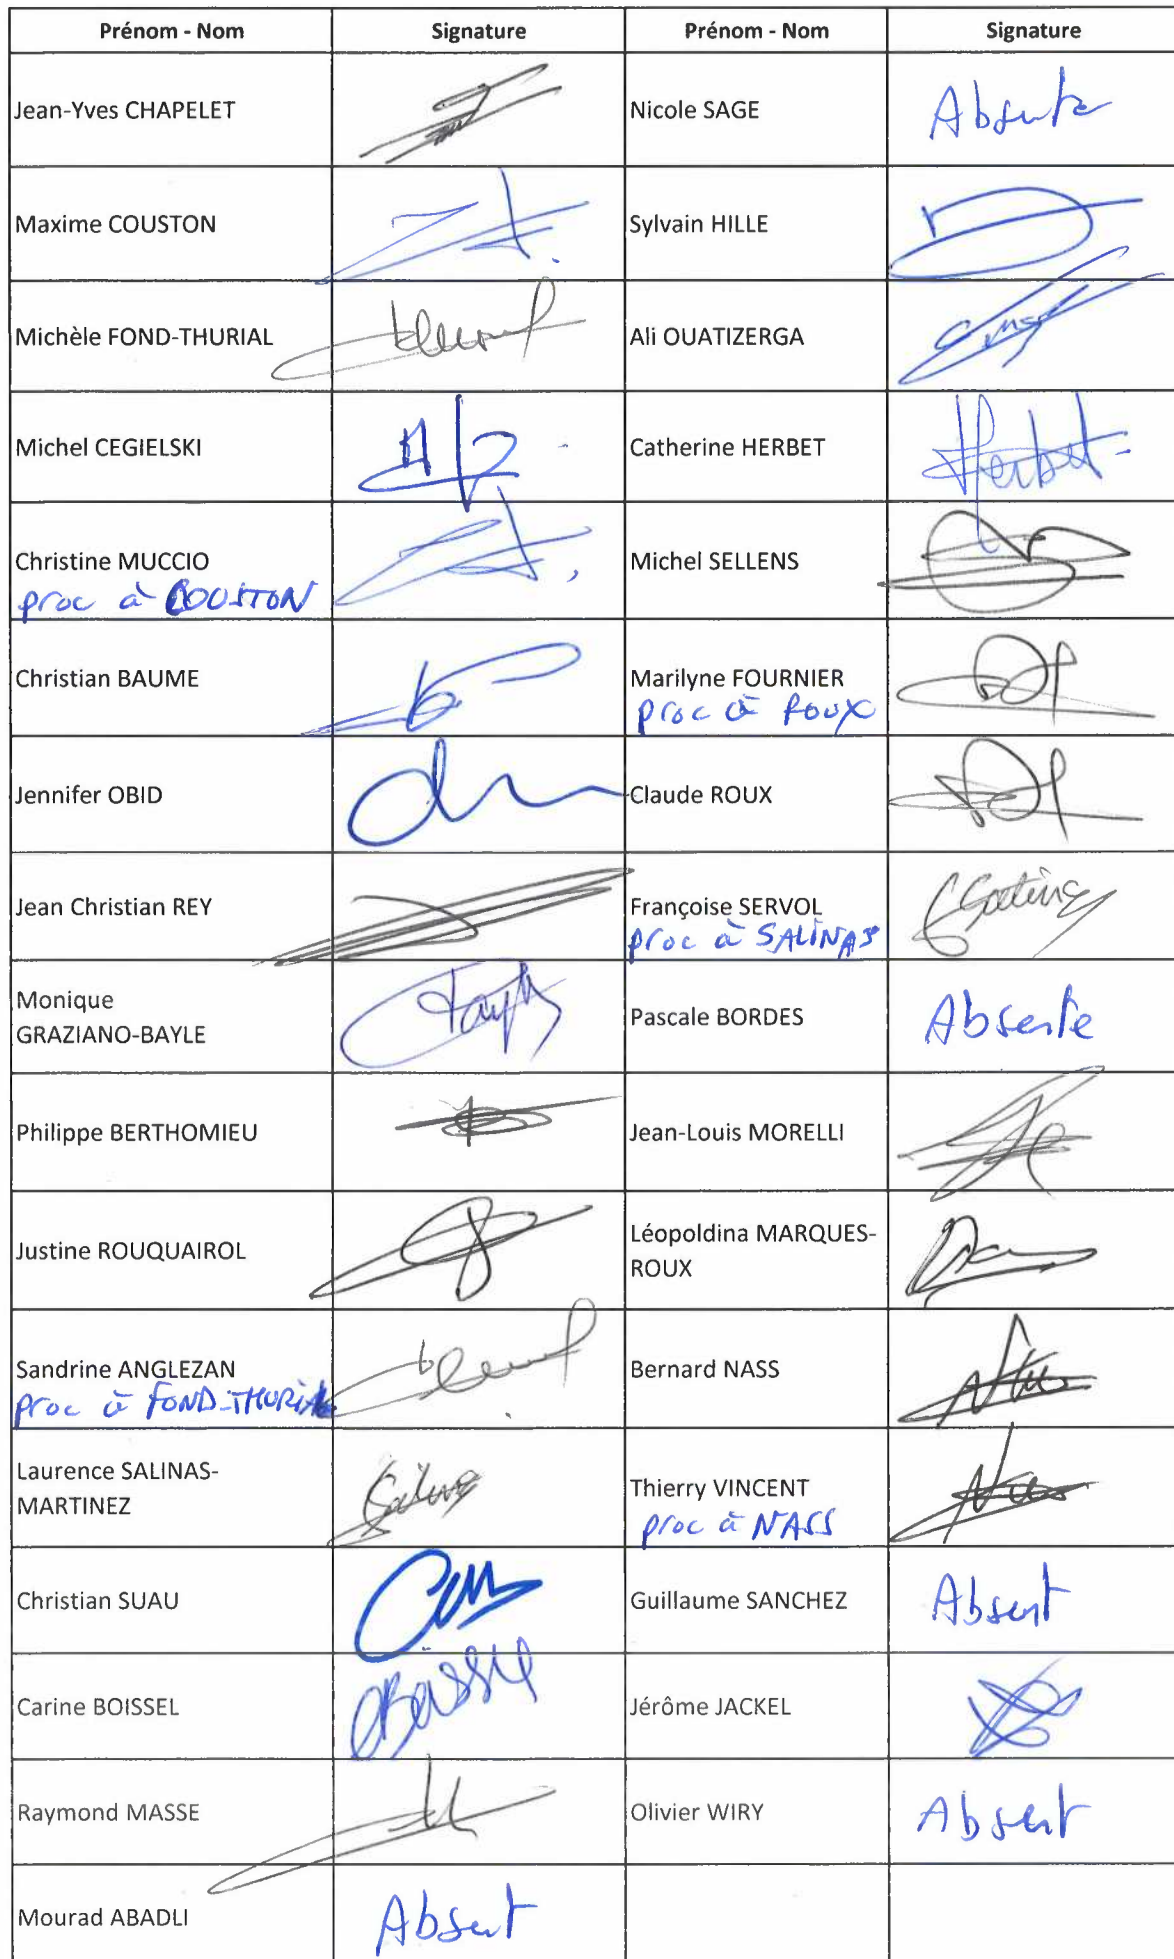 Prénom - Nom Signature Prénom - Nom Signature
Jean-Yves CHAPELET Nicole SAGE Absente
Maxime COUSTON Sylvain HILLE
Michèle FOND-THURIAL Ali OUATIZERGA
Michel CEGIELSKI Catherine HERBET Herbet
Christine MUCCIO Michel SELLENS
proc à COUSTON
Christian BAUME Marilyne FOURNIER
proc à ROUX
Jennifer OBID Claude ROUX
Jean Christian REY Françoise SERVOL
proc à SALINAS
Monique
GRAZIANO-BAYLE Pascale BORDES Absente
Philippe BERTHOMIEU Jean-Louis MORELLI
Justine ROUQUAIROL Léopoldina MARQUES-
ROUX
Sandrine ANGLEZAN Bernard NASS
proc à FOND-THURIAL
Laurence SALINAS-
MARTINEZ Thierry VINCENT
proc à NASS
Christian SUAU Guillaume SANCHEZ Absent
Carine BOISSEL Jérôme JACKEL
Raymond MASSE Olivier WIRY Absent
Mourad ABADLI Absent